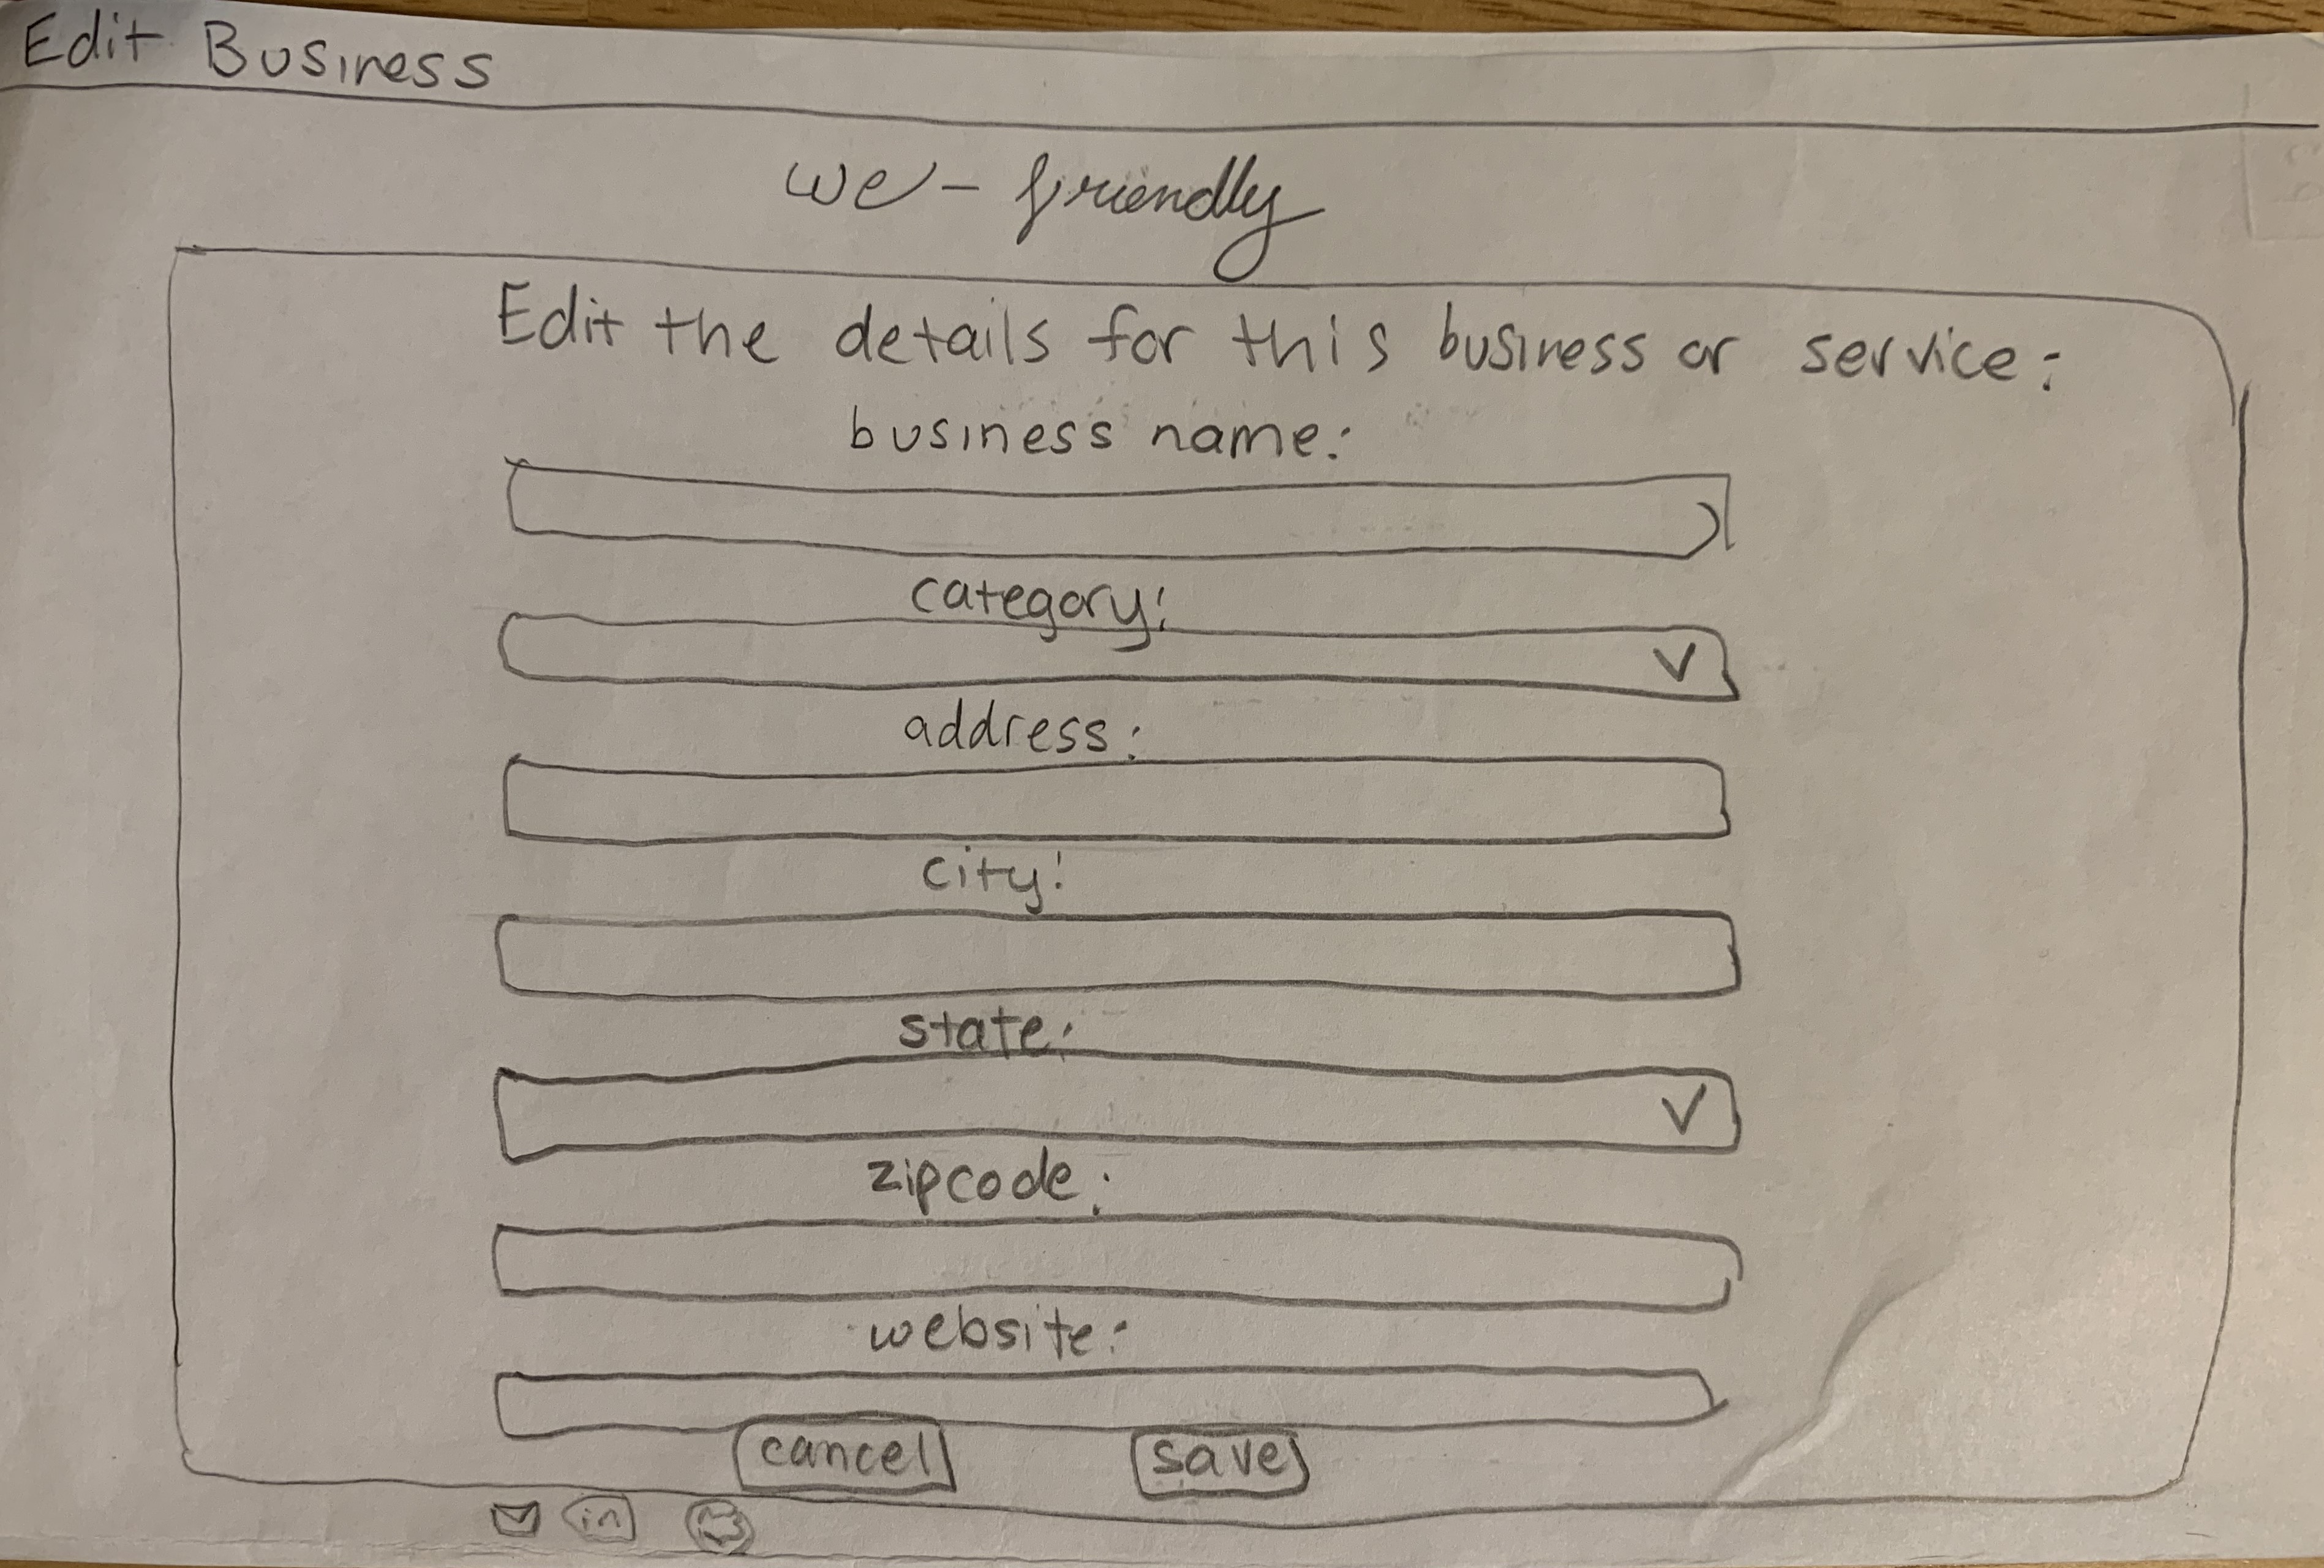 Edit Business
we-friendly
Edit the details for this business or service:
business name:
category:
address:
city:
state:
zipcode:
website:
cancel save
in